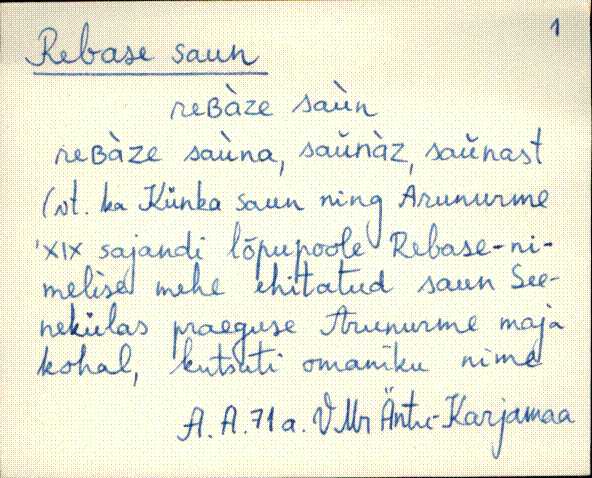 1
Rebase saun
reBàze saùn
reBàze saùna, saŭnàz, saŭnast
(vt. ka Künka saun ning Arunurme
XIX sajandi lõpupoole Rebase-ni-
melise mehe ehitatud saun See-
nekülas praeguse Arunurme maja
kohal, kutsuti omaniku nime
A. A. 71 a. VMr Äntu-Karjamaa